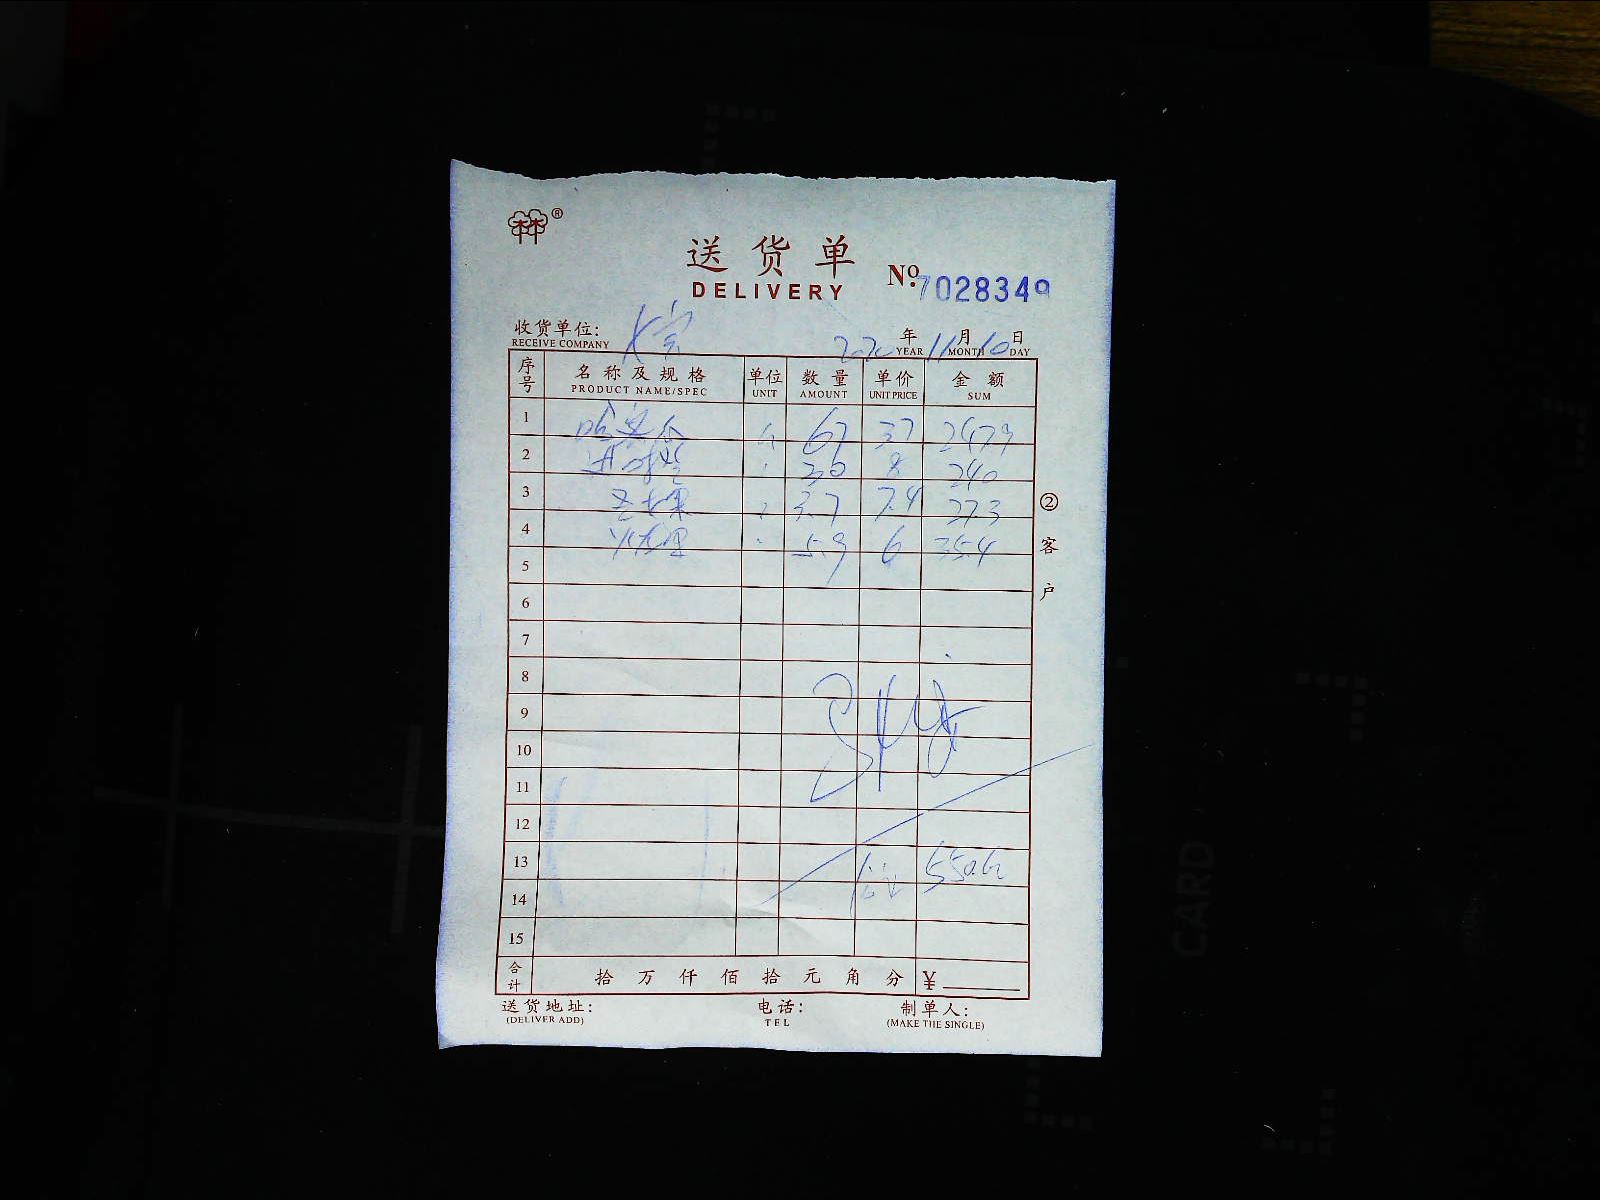 林®
送货单
DELIVERY
No. 7028349
收货单位:
RECEIVE COMPANY
2020 年 11 月 10 日
YEAR MONTH DAY
序号 名称及规格 单位 数量 单价 金额
PRODUCT NAME/SPEC UNIT AMOUNT UNIT PRICE SUM
1 哈密瓜 67 3.7 247.9
2 30 8 240
3 3.7 7.4 27.3
4 5.9 6 35.4
5
6
7
8
9
10
11
12
13 550.6
14
15
合计 拾 万 仟 佰 拾 元 角 分 ¥
②客户
送货地址: 电话: 制单人:
(DELIVER ADD) TEL (MAKE THE SINGLE)
CARD